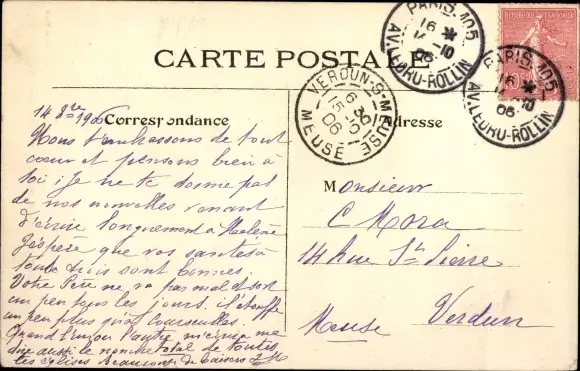 CARTE POSTALE
PARIS-105
16 * 
14-10
06
AV. LEDRU-ROLLIN
REPUBLIQUE FRANÇAISE
PARIS-105
16 *
14-10
06
AV. LEDRU-ROLLIN
VERDUN-S-MEUSE
15-10
06
MEUSE
14 8bre 1906
Correspondance
Adresse
Nous t'embrassons de tout
coeur et pensons bien à
toi ; Je ne te donne pas
de nos nouvelles venant
d'écrire longuement à Helène
J'espère que vos santés à
toutes trois sont bonnes.
Votre Père ne va pas mal et sort
un peu tous les jours. il étouffe
un peu plus qu'à Courcelles.
Quand l'un ou l'autre m'écrira me
dire aussi le nombre total de toutes
les églises Beaucoup de baisers
Monsieur
C Mora
14 rue St Pierre
Meuse Verdun